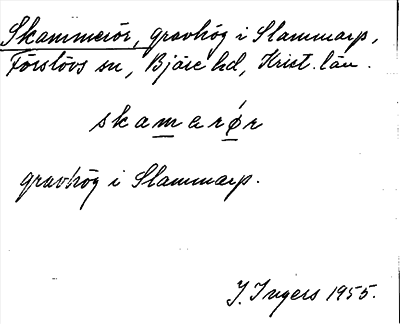 Skammerör, gravhög i Slammarp,
Förslövs sn, Bjäre hd, Krist. län.
skamarǿr
gravhög i Slammarp.
I. Ingers 1955.